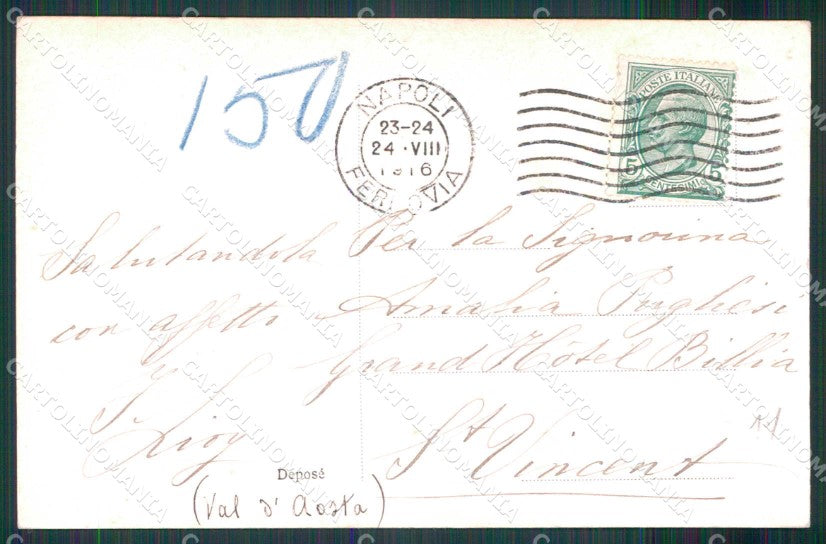 150
NAPOLI
23-24
24 · VIII
1916
FERROVIA
POSTE ITALIANE
5 5
CENTESIMI
Salutandola
con affetto
Per la Signorina
Amalia Pugliesi
Grand Hôtel Billia
St Vincent
Déposé
(Val d'Aosta)
CARTOLINOMANIA